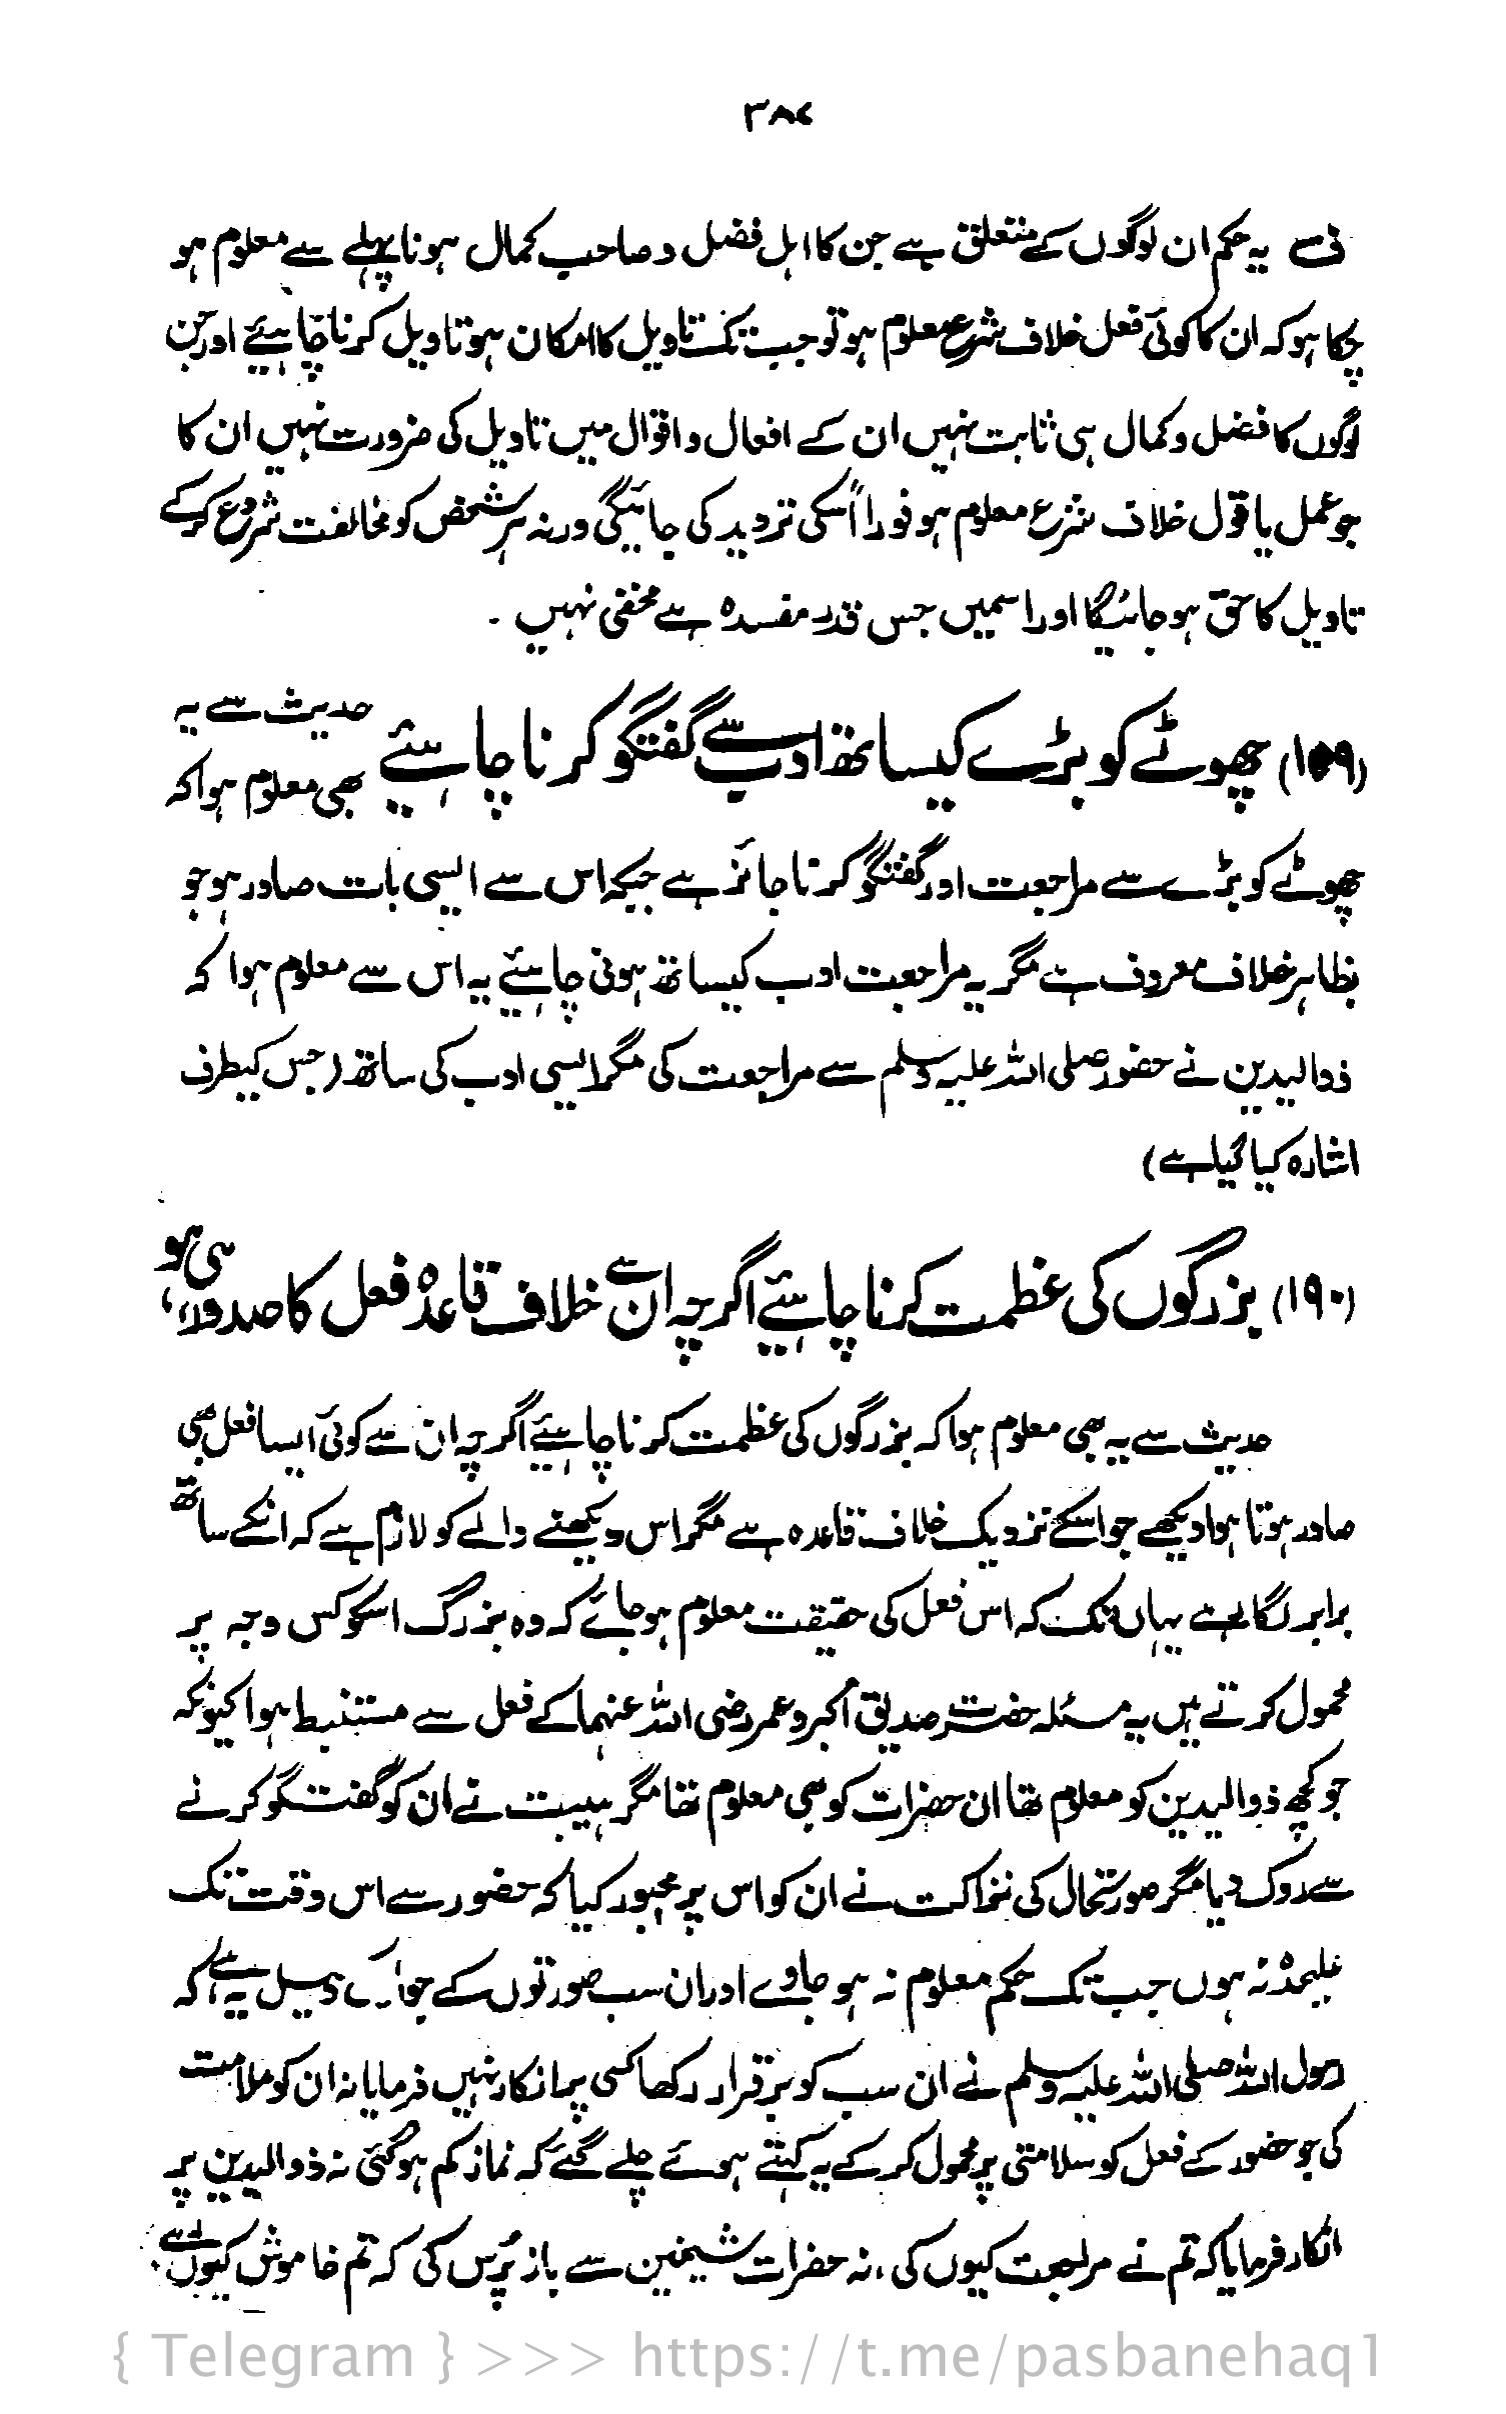 ۳۸۷
ف یہ حکم ان لوگوں کے متعلق ہے جن کا اہل فضل و صاحب کمال ہونا پہلے سے معلوم ہو
چکا ہو کہ ان کا کوئی فعل خلاف شرع معلوم ہو تو جب تک تاویل کا امکان ہو تاویل کرنا چاہیئے اور جن
لوگوں کا فضل و کمال ہی ثابت نہیں ان کے افعال و اقوال میں تاویل کی ضرورت نہیں ان کا
جو عمل یا قول خلاف شرع معلوم ہو فوراً اسکی تردید کی جائیگی ورنہ ہر شخص کو مخالفت شروع کرکے
تاویل کا حق ہو جائیگا اور اسمیں جس قدر مفسدہ ہے مخفی نہیں ۔
(۱۵۹) چھوٹے کو بڑے کیساتھ ادب سے گفتگو کرنا چاہیئے حدیث سے یہ
بھی معلوم ہوا کہ
چھوٹے کو بڑے سے مراجعت اور گفتگو کرنا جائز ہے جبکہ اس سے ایسی بات صادر ہو جو
بظاہر خلاف معروف ہے مگر یہ مراجعت ادب کیساتھ ہونی چاہیئے یہ اس سے معلوم ہوا کہ
ذوالیدین نے حضور صلی اللہ علیہ وسلم سے مراجعت کی مگر ایسی ادب کی ساتھ (جس کیطرف
اشارہ کیا گیا ہے)
(۱۹۰) بزرگوں کی عظمت کرنا چاہیئے اگرچہ ان سے خلاف قاعدہ فعل کا صدور ہی ہو
حدیث سے یہ بھی معلوم ہوا کہ بزرگوں کی عظمت کرنا چاہیئے اگرچہ ان سے کوئی ایسا فعل بھی
صادر ہوتا ہوا دیکھے جو اسکے نزدیک خلاف قاعدہ ہے مگر اس دیکھنے والے کو لازم ہے کہ انکے ساتھ
برابر لگا رہے یہاں تک کہ اس فعل کی حقیقت معلوم ہو جائے کہ وہ بزرگ اسکو کس وجہ پر
محمول کرتے ہیں یہ مسئلہ حضرت صدیق اکبر و عمر رضی اللہ عنہما کے فعل سے مستنبط ہوا کیونکہ
جو کچھ ذوالیدین کو معلوم تھا ان حضرات کو بھی معلوم تھا مگر ہیبت نے ان کو گفتگو کرنے
سے روک دیا مگر صورتحال کی نزاکت نے ان کو اس پر مجبور کیا کہ حضور سے اس وقت تک
علیحدہ نہ ہوں جب تک حکم معلوم نہ ہو جاوے اور ان سب صورتوں کے جواز کی دلیل یہ ہے کہ
رسول اللہ صلی اللہ علیہ وسلم نے ان سب کو برقرار رکھا کسی پر انکار نہیں فرمایا نہ ان کو ملامت
کی جو حضور کے فعل کو سلامتی پر محمول کرکے یہ کہتے ہوئے چلے گئے کہ نماز کم ہو گئی نہ ذوالیدین پر
انکار فرمایا کہ تم نے مراجعت کیوں کی ، نہ حضرات شیخین سے باز پرس کی کہ تم خاموش کیوں رہے
{ Telegram } >>> https://t.me/pasbanehaq1